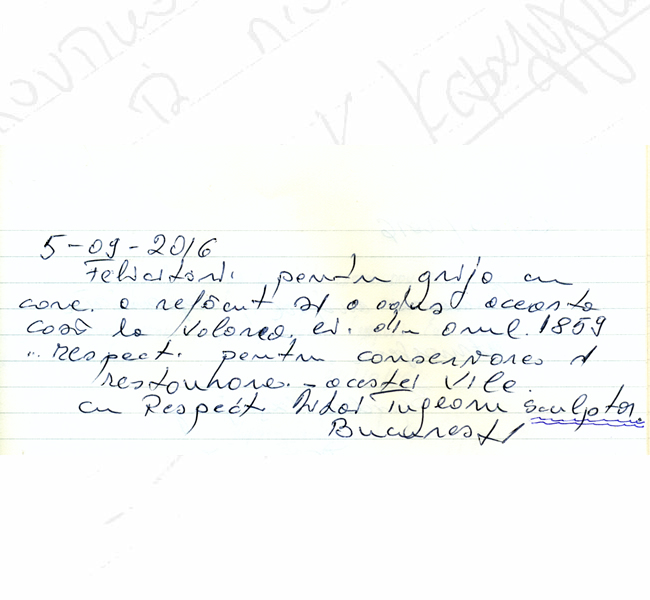 5-09-2016
Felicitări. pentru grija cu
care. a refăcut și a adus aceasta
casă la valorea. ei. din anul. 1859
.. respect. pentru conservarea și
restaurare. - acestei Vile.
cu Respect sculptor
București